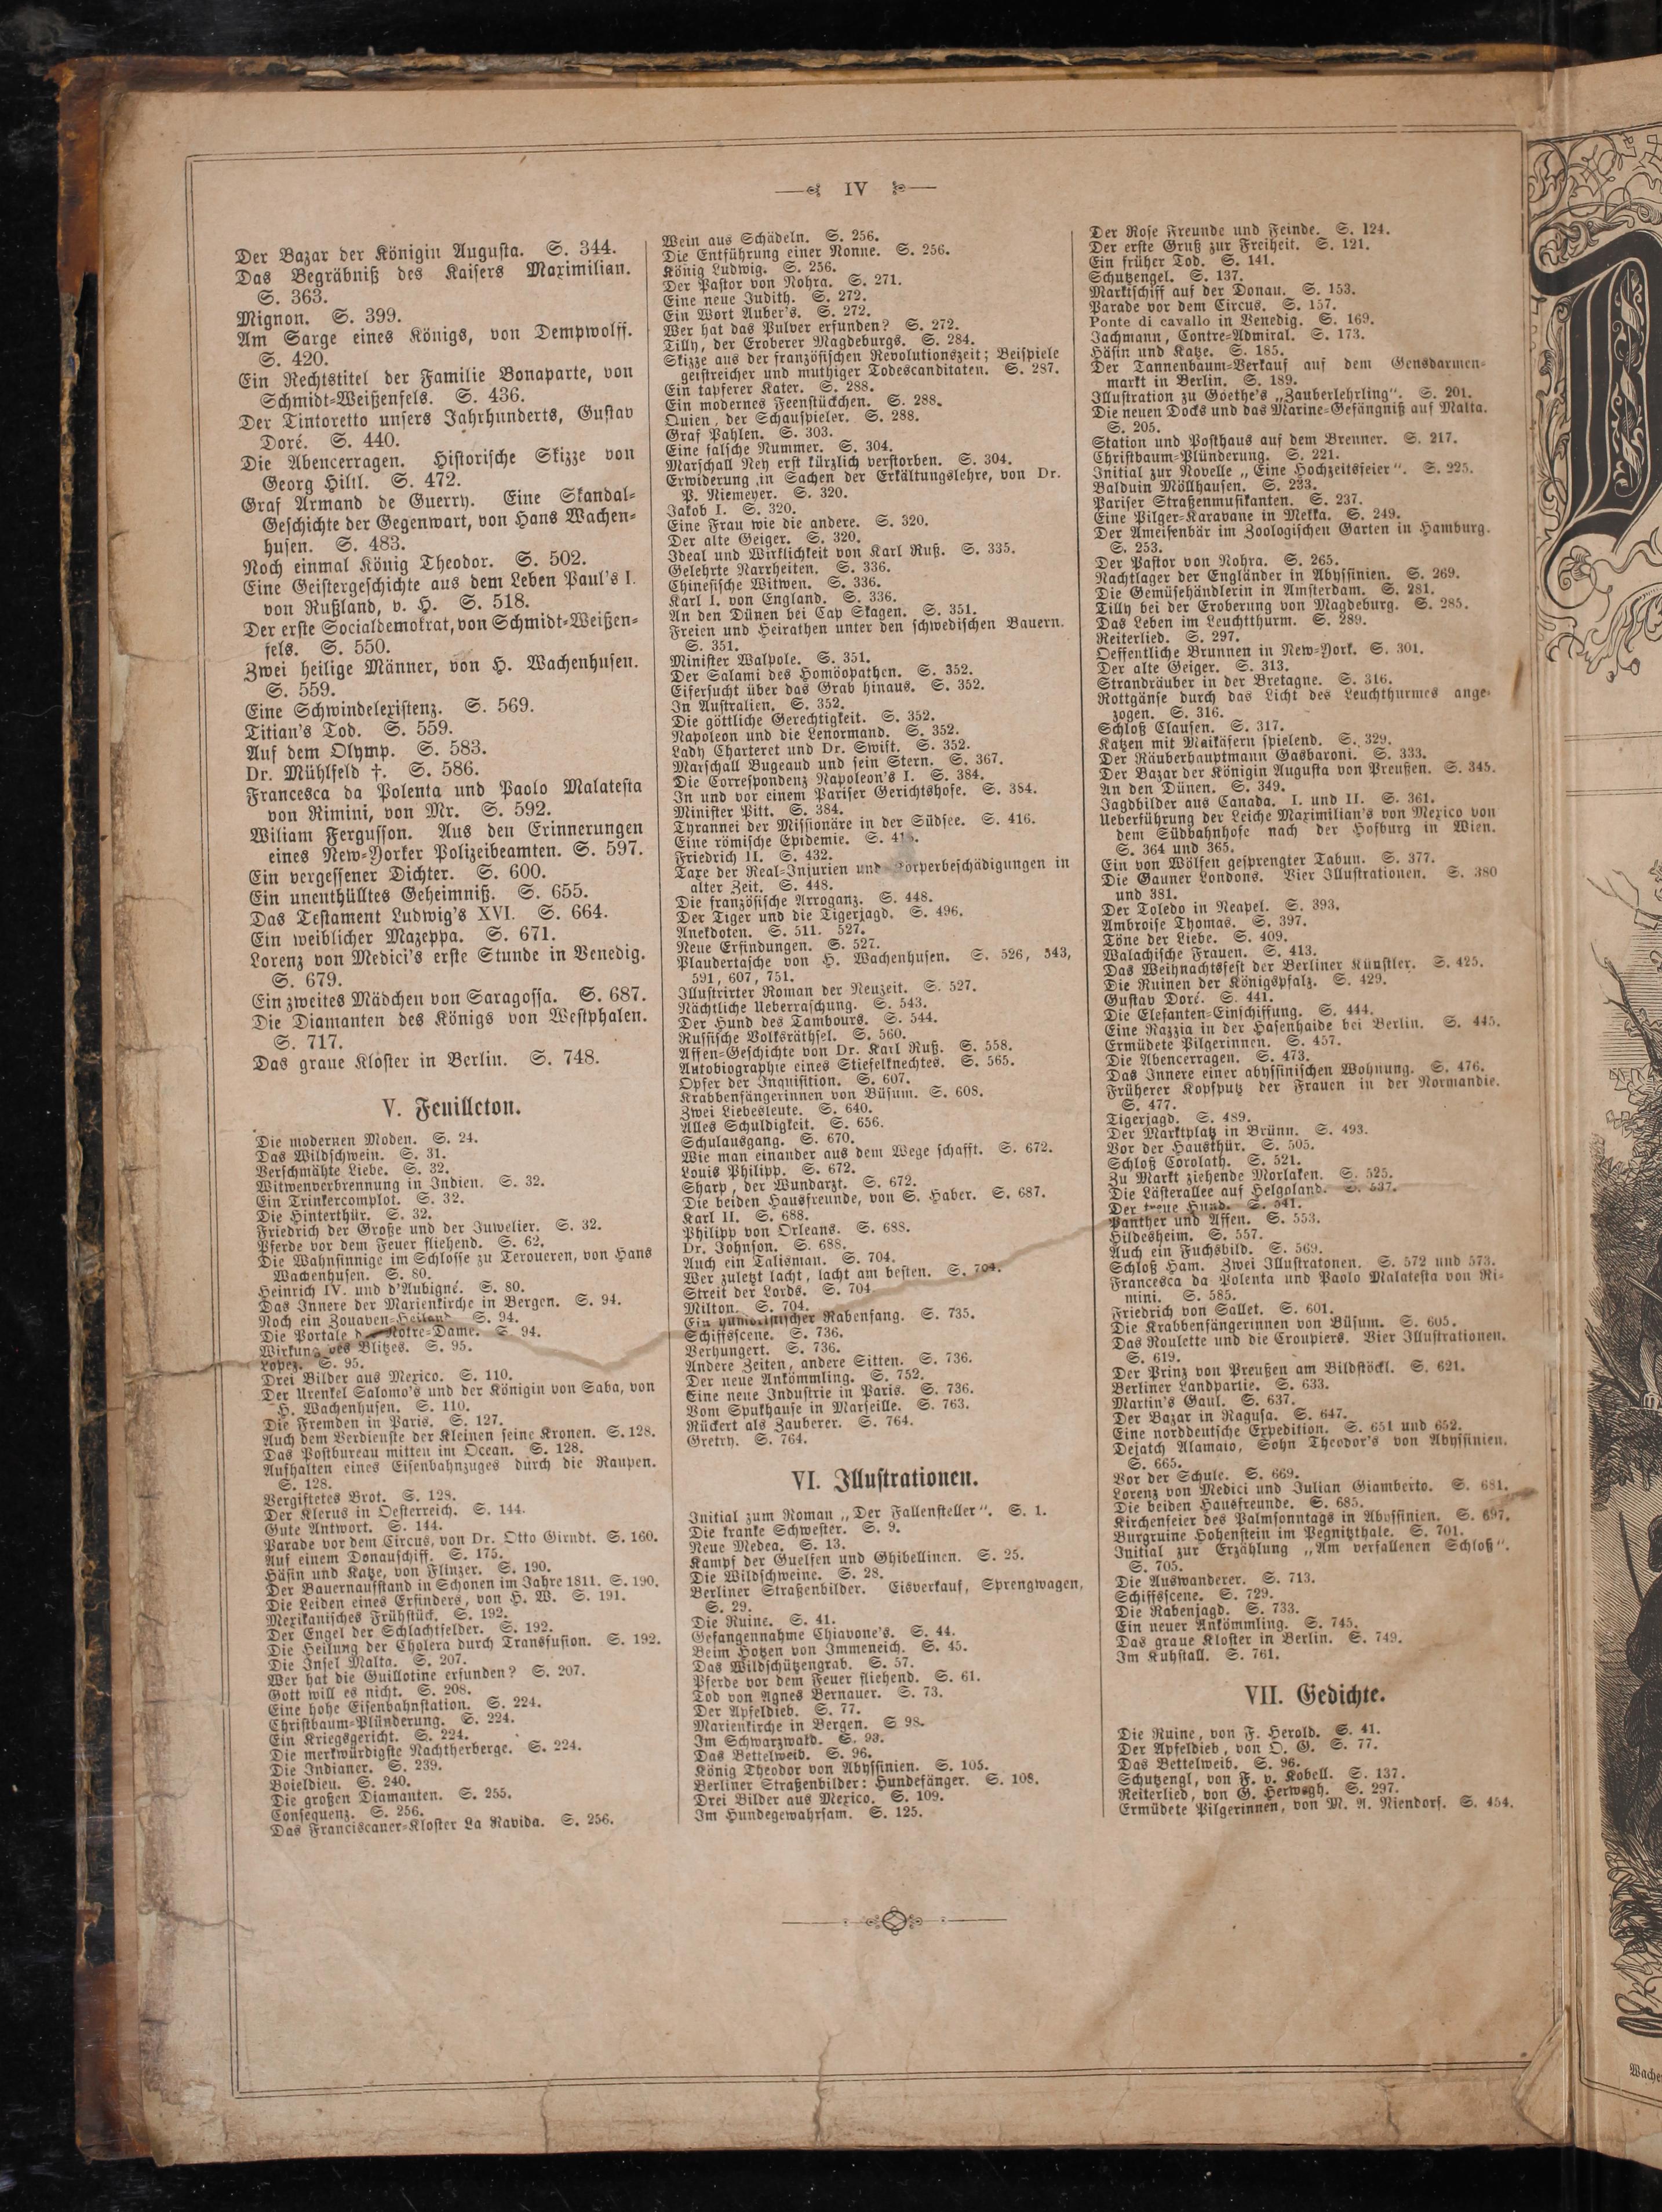 IV
Der Bazar der Königin Augusta. S. 344.
Das Begräbniß des Kaisers Maximilian.
S. 363.
Mignon. S. 399.
Am Sarge eines Königs, von Dempwolff.
S. 420.
Ein Rechtstitel der Familie Bonaparte, von
Schmidt-Weißenfels. S. 436.
Der Tintoretto unsers Jahrhunderts, Gustav
Doré. S. 440.
Die Abencerragen. Historische Skizze von
Georg Hiltl. S. 472.
Graf Armand de Guerry. Eine Skandal-
Geschichte der Gegenwart, von Hans Wachen-
husen. S. 483.
Noch einmal König Theodor. S. 502.
Eine Geistergeschichte aus dem Leben Paul's I.
von Rußland, v. H. S. 518.
Der erste Socialdemokrat, von Schmidt-Weißen-
fels. S. 550.
Zwei heilige Männer, von H. Wachenhusen.
S. 559.
Eine Schwindelexistenz. S. 569.
Titian's Tod. S. 559.
Auf dem Olymp. S. 583.
Dr. Mühlfeld †. S. 586.
Francesca da Polenta und Paolo Malatesta
von Rimini, von Mr. S. 592.
Wiliam Fergusson. Aus den Erinnerungen
eines New-Yorker Polizeibeamten. S. 597.
Ein vergessener Dichter. S. 600.
Ein unenthülltes Geheimniß. S. 655.
Das Testament Ludwig's XVI. S. 664.
Ein weiblicher Mazeppa. S. 671.
Lorenz von Medici's erste Stunde in Venedig.
S. 679.
Ein zweites Mädchen von Saragossa. S. 687.
Die Diamanten des Königs von Westphalen.
S. 717.
Das graue Kloster in Berlin. S. 748.
V. Feuilleton.
Die modernen Moden. S. 24.
Das Wildschwein. S. 31.
Verschmähte Liebe. S. 32.
Witwenverbrennung in Indien. S. 32.
Ein Trinkercomplot. S. 32.
Die Hinterthür. S. 32.
Friedrich der Große und der Juwelier. S. 32.
Pferde vor dem Feuer fliehend. S. 62.
Die Wahnsinnige im Schlosse zu Teroueren, von Hans
Wachenhusen. S. 80.
Heinrich IV. und d'Aubigné. S. 80.
Das Innere der Marienkirche in Bergen. S. 94.
Noch ein Zouaven-Heiland. S. 94.
Die Portale Notre-Dame. S. 94.
Wirkung des Blitzes. S. 95.
Lopez. S. 95.
Drei Bilder aus Mexico. S. 110.
Der Urenkel Salomo's und der Königin von Saba, von
H. Wachenhusen. S. 110.
Die Fremden in Paris. S. 127.
Auch dem Verdienste der Kleinen seine Kronen. S. 128.
Das Postbureau mitten im Ocean. S. 128.
Aufhalten eines Eisenbahnzuges durch die Raupen.
S. 128.
Vergiftetes Brot. S. 128.
Der Klerus in Oesterreich. S. 144.
Gute Antwort. S. 144.
Parade vor dem Circus, von Dr. Otto Girndt. S. 160.
Auf einem Donauschiff. S. 175.
Häsin und Katze, von Flinzer. S. 190.
Der Bauernaufstand in Schonen im Jahre 1811. S. 190.
Die Leiden eines Erfinders, von H. W. S. 191.
Mexikanisches Frühstück. S. 192.
Der Engel der Schlachtfelder. S. 192.
Die Heilung der Cholera durch Transfusion. S. 192.
Die Insel Malta. S. 207.
Wer hat die Guillotine erfunden? S. 207.
Gott will es nicht. S. 208.
Eine hohe Eisenbahnstation. S. 224.
Christbaum-Plünderung. S. 224.
Ein Kriegsgericht. S. 224.
Die merkwürdigste Nachtherberge. S. 224.
Die Indianer. S. 239.
Boieldieu. S. 240.
Die großen Diamanten. S. 255.
Consequenz. S. 256.
Das Franciscaner-Kloster La Ravida. S. 256.
Wein aus Schädeln. S. 256.
Die Entführung einer Nonne. S. 256.
König Ludwig. S. 256.
Der Pastor von Nohra. S. 271.
Eine neue Judith. S. 272.
Ein Wort Auber's. S. 272.
Wer hat das Pulver erfunden? S. 272.
Tilly, der Eroberer Magdeburgs. S. 284.
Skizze aus der französischen Revolutionszeit; Beispiele
geistreicher und muthiger Todescanditaten. S. 287.
Ein tapferer Kater. S. 288.
Ein modernes Feenstückchen. S. 288.
Quien, der Schauspieler. S. 288.
Graf Pahlen. S. 303.
Eine falsche Nummer. S. 304.
Marschall Ney erst kürzlich verstorben. S. 304.
Erwiderung in Sachen der Erkältungslehre, von Dr.
P. Niemeyer. S. 320.
Jakob I. S. 320.
Eine Frau wie die andere. S. 320.
Der alte Geiger. S. 320.
Ideal und Wirklichkeit von Karl Ruß. S. 335.
Gelehrte Narrheiten. S. 336.
Chinesische Witwen. S. 336.
Karl I. von England. S. 336.
An den Dünen bei Cap Skagen. S. 351.
Freien und Heirathen unter den schwedischen Bauern.
S. 351.
Minister Walpole. S. 351.
Der Salami des Homöopathen. S. 352.
Eifersucht über das Grab hinaus. S. 352.
In Australien. S. 352.
Die göttliche Gerechtigkeit. S. 352.
Napoleon und die Lenormand. S. 352.
Lady Charteret und Dr. Swift. S. 352.
Marschall Bugeaud und sein Stern. S. 367.
Die Correspondenz Napoleon's I. S. 384.
In und vor einem Pariser Gerichtshofe. S. 384.
Minister Pitt. S. 384.
Tyrannei der Missionäre in der Südsee. S. 416.
Eine römische Epidemie. S.
Friedrich II. S. 432.
Taxe der Real-Injurien und Körperbeschädigungen in
alter Zeit. S. 448.
Die französische Arroganz. S. 448.
Der Tiger und die Tigerjagd. S. 496.
Anekdoten. S. 511. 527.
Neue Erfindungen. S. 527.
Plaudertasche von H. Wachenhusen. S. 526, 543,
591, 607, 751.
Illustrirter Roman der Neuzeit. S. 527.
Nächtliche Ueberraschung. S. 543.
Der Hund des Tambours. S. 544.
Russische Volksräthsel. S. 560.
Affen-Geschichte von Dr. Karl Ruß. S. 558.
Autobiographie eines Stiefelknechtes. S. 565.
Opfer der Inquisition. S. 607.
Krabbenfängerinnen von Büsum. S. 608.
Zwei Liebesleute. S. 640.
Alles Schuldigkeit. S. 656.
Schulausgang. S. 670.
Wie man einander aus dem Wege schafft. S. 672.
Louis Philipp. S. 672.
Sharp, der Wundarzt. S. 672.
Die beiden Hausfreunde, von S. Haber. S. 687.
Karl II. S. 688.
Philipp von Orleans. S. 688.
Dr. Johnson. S. 688.
Auch ein Talisman. S. 704.
Wer zuletzt lacht, lacht am besten. S. 704.
Streit der Lords. S. 704
Milton. S. 704.
Ein humoristischer Rabenfang. S. 735.
Schiffsscene. S. 736.
Verhungert. S. 736.
Andere Zeiten, andere Sitten. S. 736.
Der neue Ankömmling. S. 752.
Eine neue Industrie in Paris. S. 736.
Vom Spukhause in Marseille. S. 763.
Rückert als Zauberer. S. 764.
Gretry. S. 764.
VI. Illustrationen.
Initial zum Roman „Der Fallensteller“. S. 1.
Die kranke Schwester. S. 9.
Neue Medea. S. 13.
Kampf der Guelfen und Ghibellinen. S. 25.
Die Wildschweine. S. 28.
Berliner Straßenbilder. Eisverkauf, Sprengwagen,
S. 29.
Die Ruine. S. 41.
Gefangennahme Chiavone's. S. 44.
Beim Hotzen von Immeneich. S. 45.
Das Wildschützengrab. S. 57.
Pferde vor dem Feuer fliehend. S. 61.
Tod von Agnes Bernauer. S. 73.
Der Apfeldieb. S. 77.
Marienkirche in Bergen. S 98.
Im Schwarzwald. S. 93.
Das Bettelweib. S. 96.
König Theodor von Abyssinien. S. 105.
Berliner Straßenbilder: Hundefänger. S. 108.
Drei Bilder aus Mexico. S. 109.
Im Hundegewahrsam. S. 125.
Der Rose Freunde und Feinde. S. 124.
Der erste Gruß zur Freiheit. S. 121.
Ein früher Tod. S. 141.
Schutzengel. S. 137.
Marktschiff auf der Donau. S. 153.
Parade vor dem Circus. S. 157.
Ponte di cavallo in Venedig. S. 169.
Jachmann, Contre-Admiral. S. 173.
Häsin und Katze. S. 185.
Der Tannenbaum-Verkauf auf dem Gensdarmen-
markt in Berlin. S. 189.
Illustration zu Goethe's „Zauberlehrling“. S. 201.
Die neuen Docks und das Marine-Gefängniß auf Malta.
S. 205.
Station und Posthaus auf dem Brenner. S. 217.
Christbaum-Plünderung. S. 221.
Initial zur Novelle „Eine Hochzeitsfeier“. S. 225.
Balduin Möllhausen. S. 233.
Pariser Straßenmusikanten. S. 237.
Eine Pilger-Karavane in Mekka. S. 249.
Der Ameisenbär im Zoologischen Garten in Hamburg.
S. 253.
Der Pastor von Nohra. S. 265.
Nachtlager der Engländer in Abyssinien. S. 269.
Die Gemüsehändlerin in Amsterdam. S. 281.
Tilly bei der Eroberung von Magdeburg. S. 285.
Das Leben im Leuchtthurm. S. 289.
Reiterlied. S. 297.
Oeffentliche Brunnen in New-York. S. 301.
Der alte Geiger. S. 313.
Strandräuber in der Bretagne. S. 316.
Rottgänse durch das Licht des Leuchthurmes ange-
zogen. S. 316.
Schloß Clausen. S. 317.
Katzen mit Maikäfern spielend. S. 329.
Der Räuberhauptmann Gasbaroni. S. 333.
Der Bazar der Königin Augusta von Preußen. S. 345.
An den Dünen. S. 349.
Jagdbilder aus Canada. I. und II. S. 361.
Ueberführung der Leiche Maximilian's von Mexico von
dem Südbahnhofe nach der Hofburg in Wien.
S. 364 und 365.
Ein von Wölfen gesprengter Tabun. S. 377.
Die Gauner Londons. Vier Illustrationen. S. 380
und 381.
Der Toledo in Neapel. S. 393.
Ambroise Thomas. S. 397.
Töne der Liebe. S. 409.
Walachische Frauen. S. 413.
Das Weihnachtsfest der Berliner Künstler. S. 425.
Die Ruinen der Königspfalz. S. 429.
Gustav Doré. S. 441.
Die Elefanten-Einschiffung. S. 444.
Eine Razzia in der Hasenhaide bei Berlin. S. 445.
Ermüdete Pilgerinnen. S. 457.
Die Abencerragen. S. 473.
Das Innere einer abyssinischen Wohnung. S. 476.
Früherer Kopfputz der Frauen in der Normandie.
S. 477.
Tigerjagd. S. 489.
Der Marktplatz in Brünn. S. 493.
Vor der Hausthür. S. 505.
Schloß Corolath. S. 521.
Zu Markt ziehende Morlaken. S. 525.
Die Lästerallee auf Helgoland. S. 537.
Der treue Hund. S. 541.
Panther und Affen. S. 553.
Hildesheim. S. 557.
Auch ein Fuchsbild. S. 569.
Schloß Ham. Zwei Illustratonen. S. 572 und 573.
Francesca da Polenta und Paolo Malatesta von Ri-
mini. S. 585.
Friedrich von Sallet. S. 601.
Die Krabbenfängerinnen von Büsum. S. 605.
Das Roulette und die Croupiers. Vier Illustrationen.
S. 619.
Der Prinz von Preußen am Bildstöckl. S. 621.
Berliner Landpartie. S. 633.
Martin's Gaul. S. 637.
Der Bazar in Ragusa. S. 647.
Eine norddeutsche Expedition. S. 651 und 652.
Dejatch Alamaio, Sohn Theodor's von Abyssinien.
S. 665.
Vor der Schule. S. 669.
Lorenz von Medici und Julian Giamberto. S. 681.
Die beiden Hausfreunde. S. 685.
Kirchenfeier des Palmsonntags in Abyssinien. S. 697.
Burgruine Hohenstein im Pegnitzthale. S. 701.
Initial zur Erzählung „Am verfallenen Schloß“.
S. 705.
Die Auswanderer. S. 713.
Schiffsscene. S. 729.
Die Rabenjagd. S. 733.
Ein neuer Ankömmling. S. 745.
Das graue Kloster in Berlin. S. 749.
Im Kuhstall. S. 761.
VII. Gedichte.
Die Ruine, von F. Herold. S. 41.
Der Apfeldieb, von O. G. S. 77.
Das Bettelweib. S. 96.
Schutzengl, von F. v. Kobell. S. 137.
Reiterlied, von G. Herwegh. S. 297.
Ermüdete Pilgerinnen, von M. A. Niendorf. S. 454.